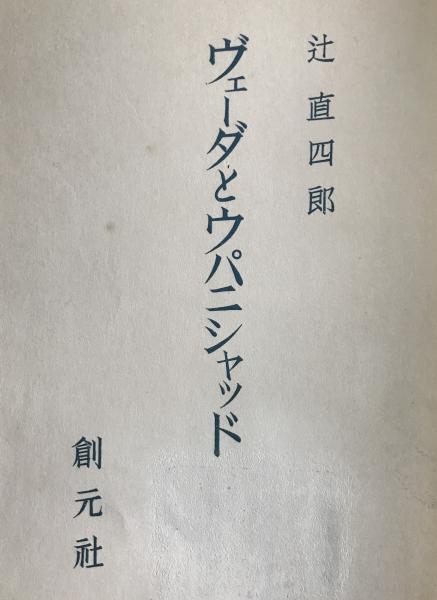 辻直四郎
ヴェーダとウパニシャッド
創元社